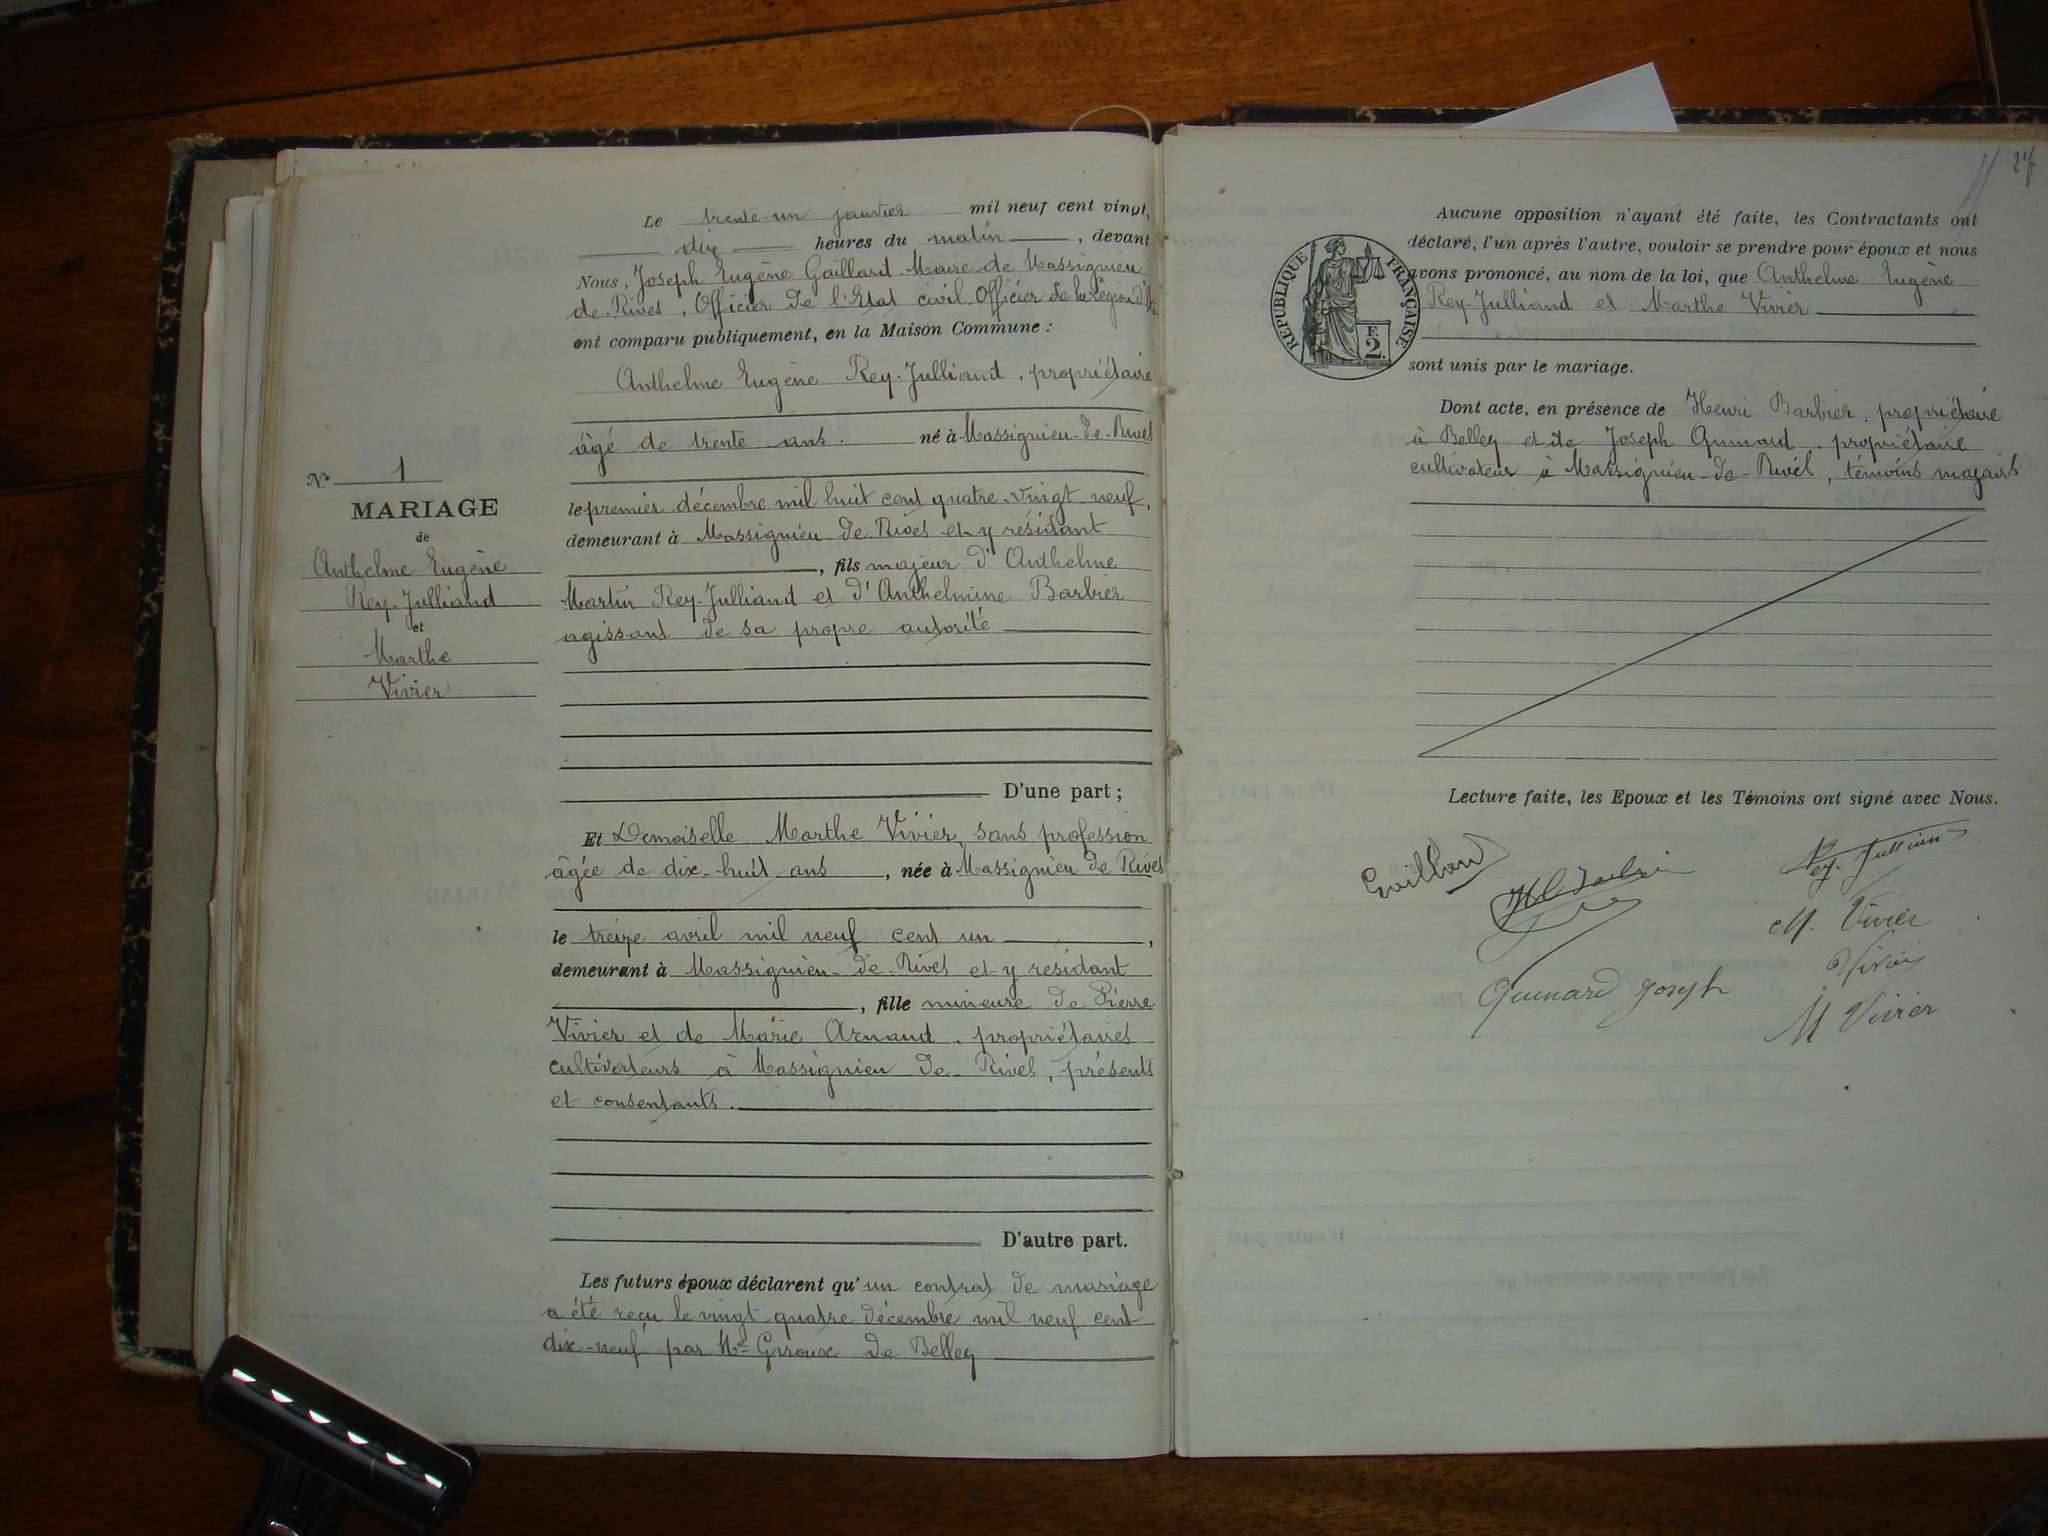 Le trente-un janvier mil neuf cent vingt,
dix heures du matin, devant
Nous, Joseph Eugène Gaillard Maire de Massignieu
de-Rives, Officier de l'Etat civil. Officier de la Légion d'H
ont comparu publiquement, en la Maison Commune :
Anthelme Eugène Rey-Julliand, propriétaire
âgé de trente ans. né à Massignieu-de-Rives
le premier décembre mil huit cent quatre-vingt neuf,
demeurant à Massignieu de Rives et y résidant
, fils majeur d'Anthelme
Martin Rey-Julliand et d'Anthelmine Barbier
agissant de sa propre autorité
D'une part ;
N° 1
MARIAGE
de
Anthelme Eugène
Rey-Julliand
et
Marthe
Vivier
Et Demoiselle Marthe Vivier, sans profession
âgée de dix-huit ans, née à Massignieu de Rives
le treize avril mil neuf cent un,
demeurant à Massignieu-de-Rives et y résidant
, fille mineure de Pierre
Vivier et de Marie Arnaud, propriétaires
cultivateurs à Massignieu de-Rives, présents
et consentants.
D'autre part.
Les futurs époux déclarent qu'un contrat de mariage
a été reçu le vingt quatre décembre mil neuf cent
dix-neuf par Me Giroux de Belley
27
Aucune opposition n'ayant été faite, les Contractants ont
déclaré, l'un après l'autre, vouloir se prendre pour époux et nous
avons prononcé, au nom de la loi, que Anthelme-Eugène
Rey-Julliand et Marthe Vivier
sont unis par le mariage.
RÉPUBLIQUE FRANÇAISE
E
2.
Dont acte, en présence de Henri Barbier, propriétaire
à Belley et de Joseph Guinard, propriétaire
cultivateur à Massignieu-de-Rives, témoins majeurs
Lecture faite, les Epoux et les Témoins ont signé avec Nous.
Gaillard
Rey-Jullian
M. Vivier
Vivier
Guinard Joseph
M Vivier